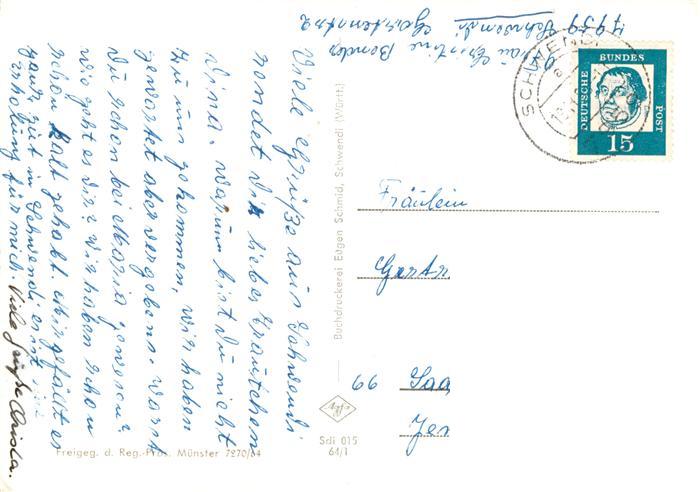 Viele Grüße aus Schwendi
sendet Dir liebes Trautchen
Dina. Warum bist Du nicht
zu uns gekommen, wir haben
gewartet aber vergebens. Warst
Du schon bei Maria gewesen?
Wie geht es Dir? Wir haben schon
schon kalt gehabt. Mir gefällt es
ganz gut in Schwendi es ist
Erholung für mich. Viele Grüße
Frau Christine
7959 Schwendi
SCHWENDI
DEUTSCHE BUNDESPOST
15
Fräulein
66 Saa
Buchdruckerei Edgen Schmid, Schwendi (Württ.)
Sdi 015
64/1
Freigeg. d. Reg.-Präs. Münster 7270/64